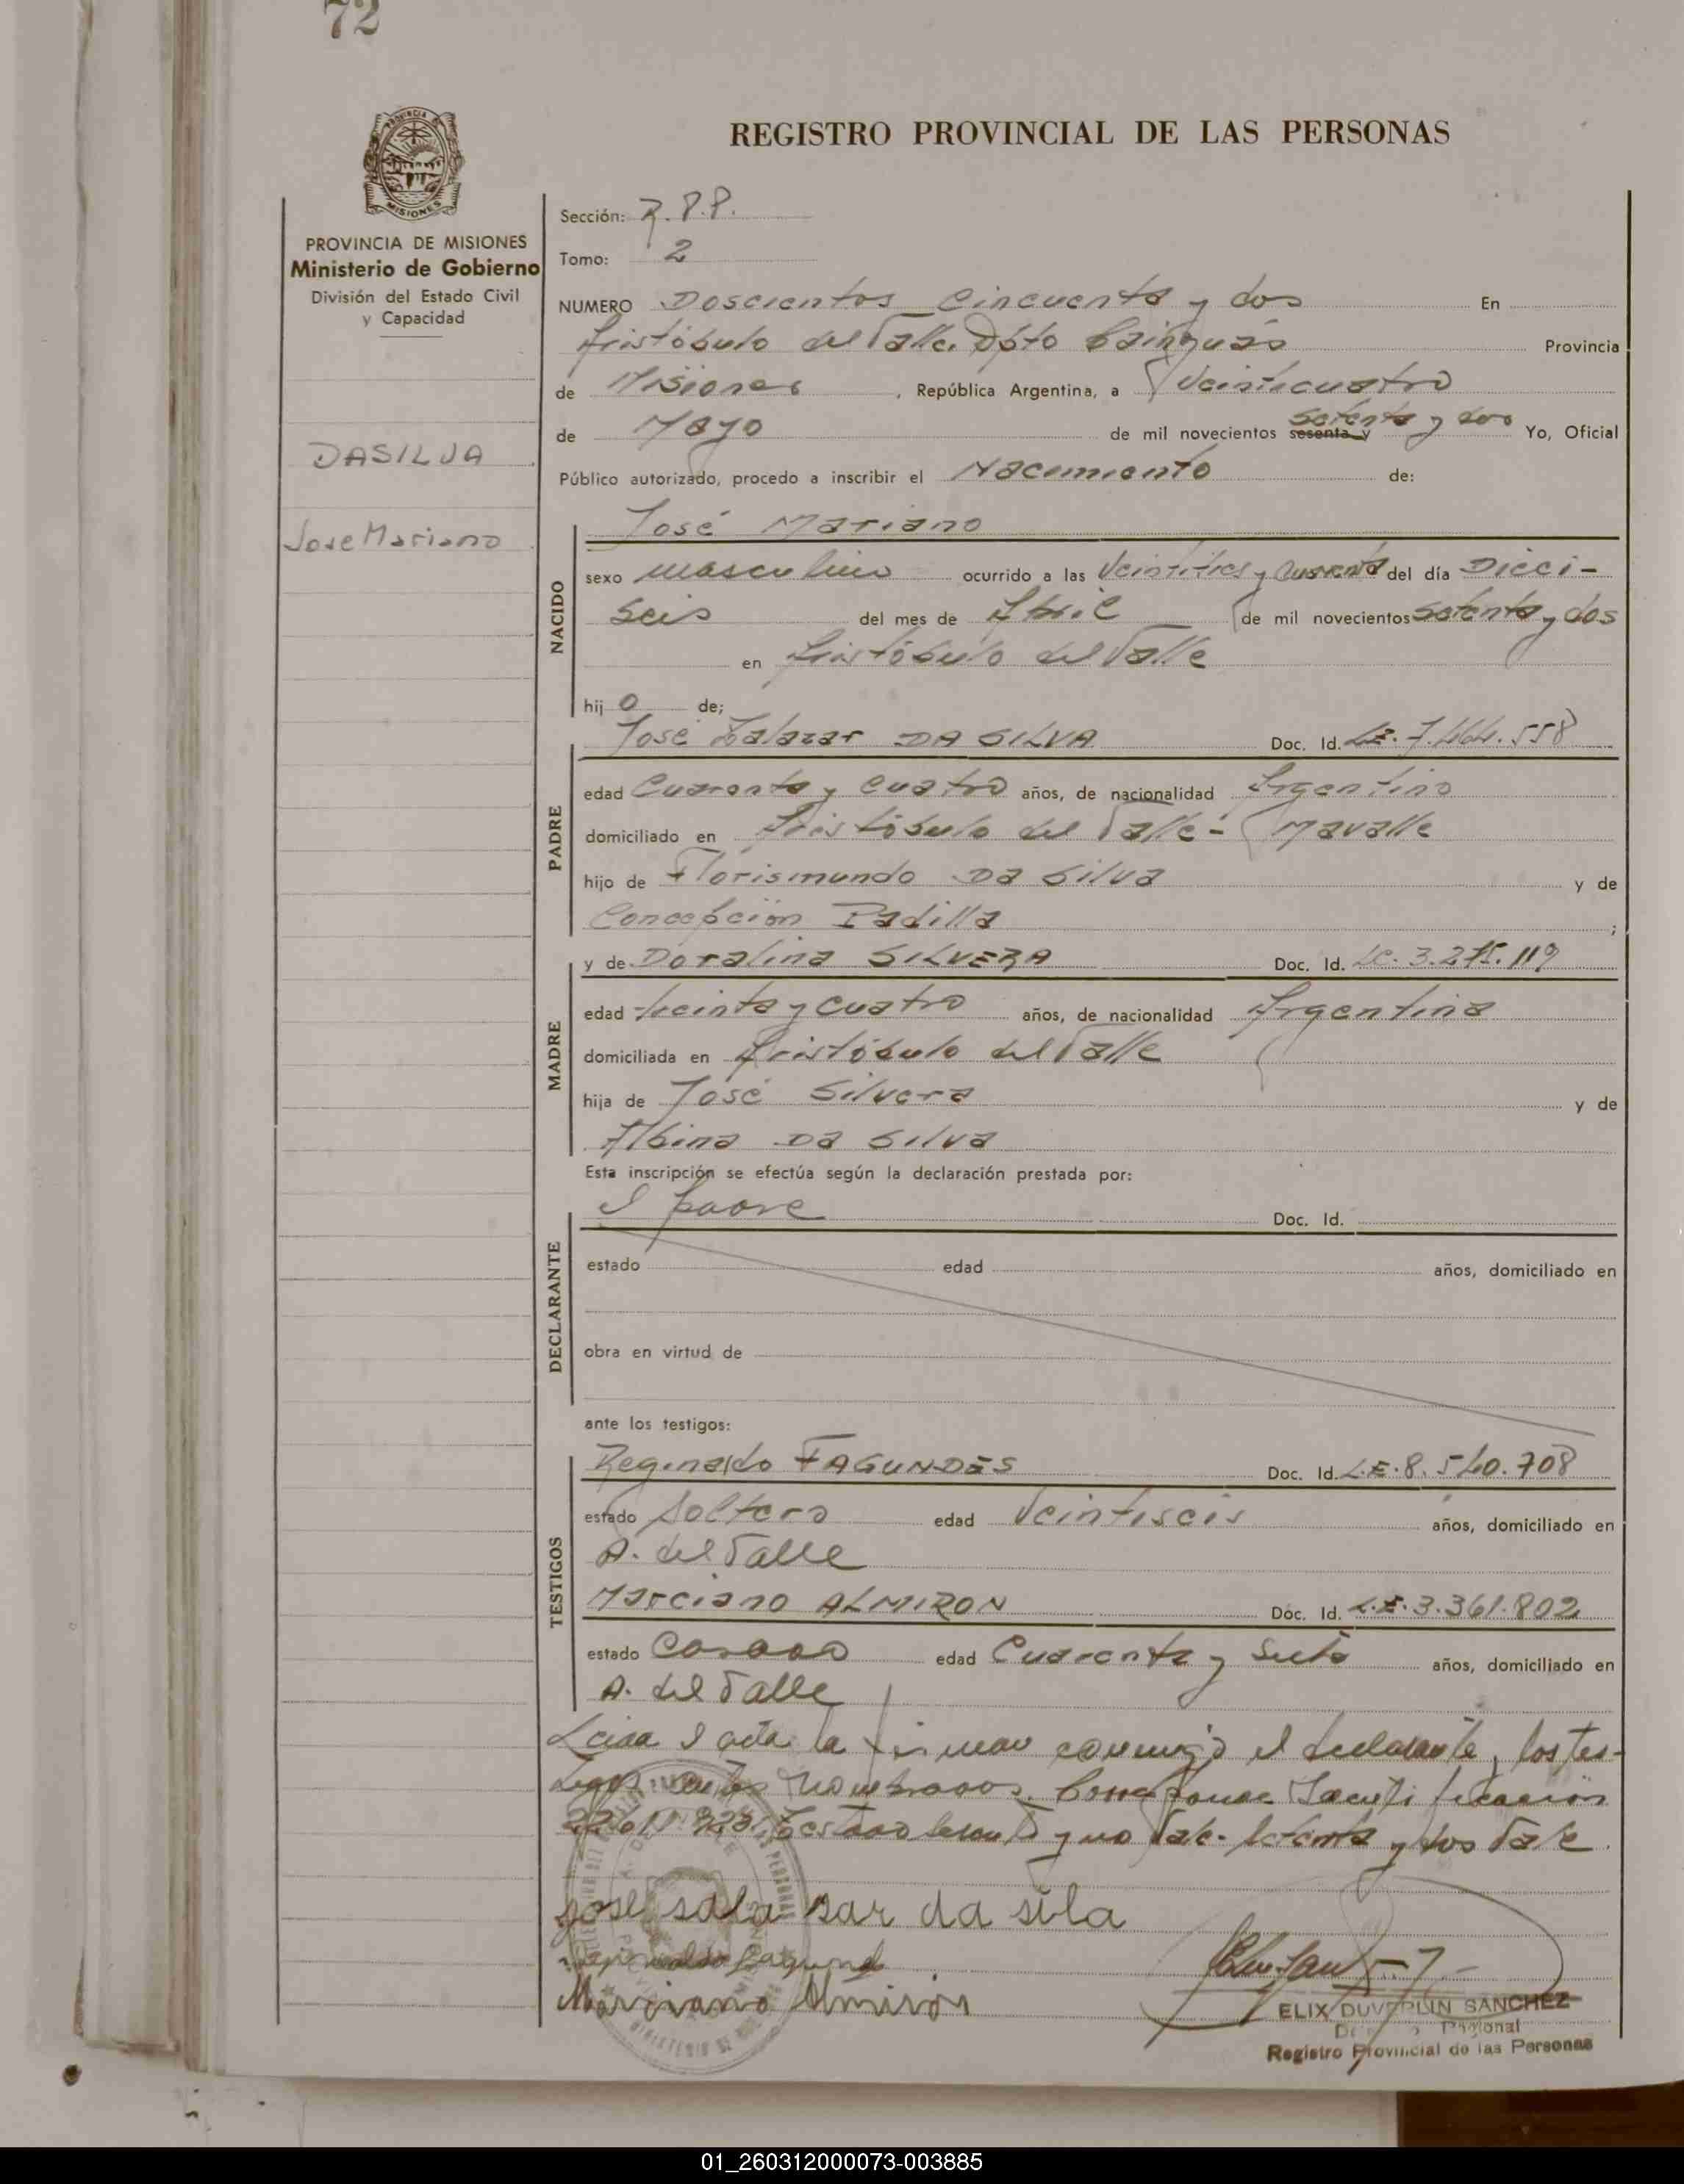 72
REGISTRO PROVINCIAL DE LAS PERSONAS
MISIONES
PROVINCIA DE MISIONES
Ministerio de Gobierno
División del Estado Civil
y Capacidad
DASILVA
Jose Mariano
Sección: R.P.P.
Tomo: 2
NUMERO Doscientos Cincuenta y dos En
Aristóbulo del Valle. Dpto Cainguás Provincia
de Misiones, República Argentina, a Veinticuatro
de Mayo de mil novecientos sesenta y setenta y dos Yo, Oficial
Público autorizado, procedo a inscribir el Nacimiento de:
José Mariano
NACIDO
sexo masculino ocurrido a las Veintitres y cuarenta del día Dieci-
seis del mes de Abril de mil novecientos setenta y dos
en Aristóbulo del Valle
hijo de;
PADRE
José Zalazar DA SILVA Doc. Id. LE. 7.464.558
edad Cuarenta y cuatro años, de nacionalidad Argentino
domiciliado en Aristóbulo del Valle- Mavalle
hijo de Florismundo Da Silva y de
Concepción Padilla ;
MADRE
y de Doralina SILVERA Doc. Id. LC. 3.275.119
edad treinta y cuatro años, de nacionalidad Argentina
domiciliada en Aristóbulo del Valle
hija de José Silvera y de
Albina Da Silva
Esta inscripción se efectúa según la declaración prestada por:
DECLARANTE
el padre Doc. Id.
estado edad años, domiciliado en
obra en virtud de
ante los testigos:
TESTIGOS
Reginaldo FAGUNDES Doc. Id. L.E. 8.540.708
estado Soltero edad Veintiseis años, domiciliado en
A. del Valle
Marciano ALMIRON Doc. Id. L.E. 3.361.802
estado Casado edad Cuarenta y siete años, domiciliado en
A. del Valle
Leida el acta la firman conmigo el declarante, los tes-
tigos antes nombrados. Corresponde Identificación
Testado sesenta y no Vale- setenta y dos Vale.
jose sala sar da sila
Marciano Almirón
ELIX DUVERLIN SANCHEZ
Registro Provincial de las Personas
01_260312000073-003885